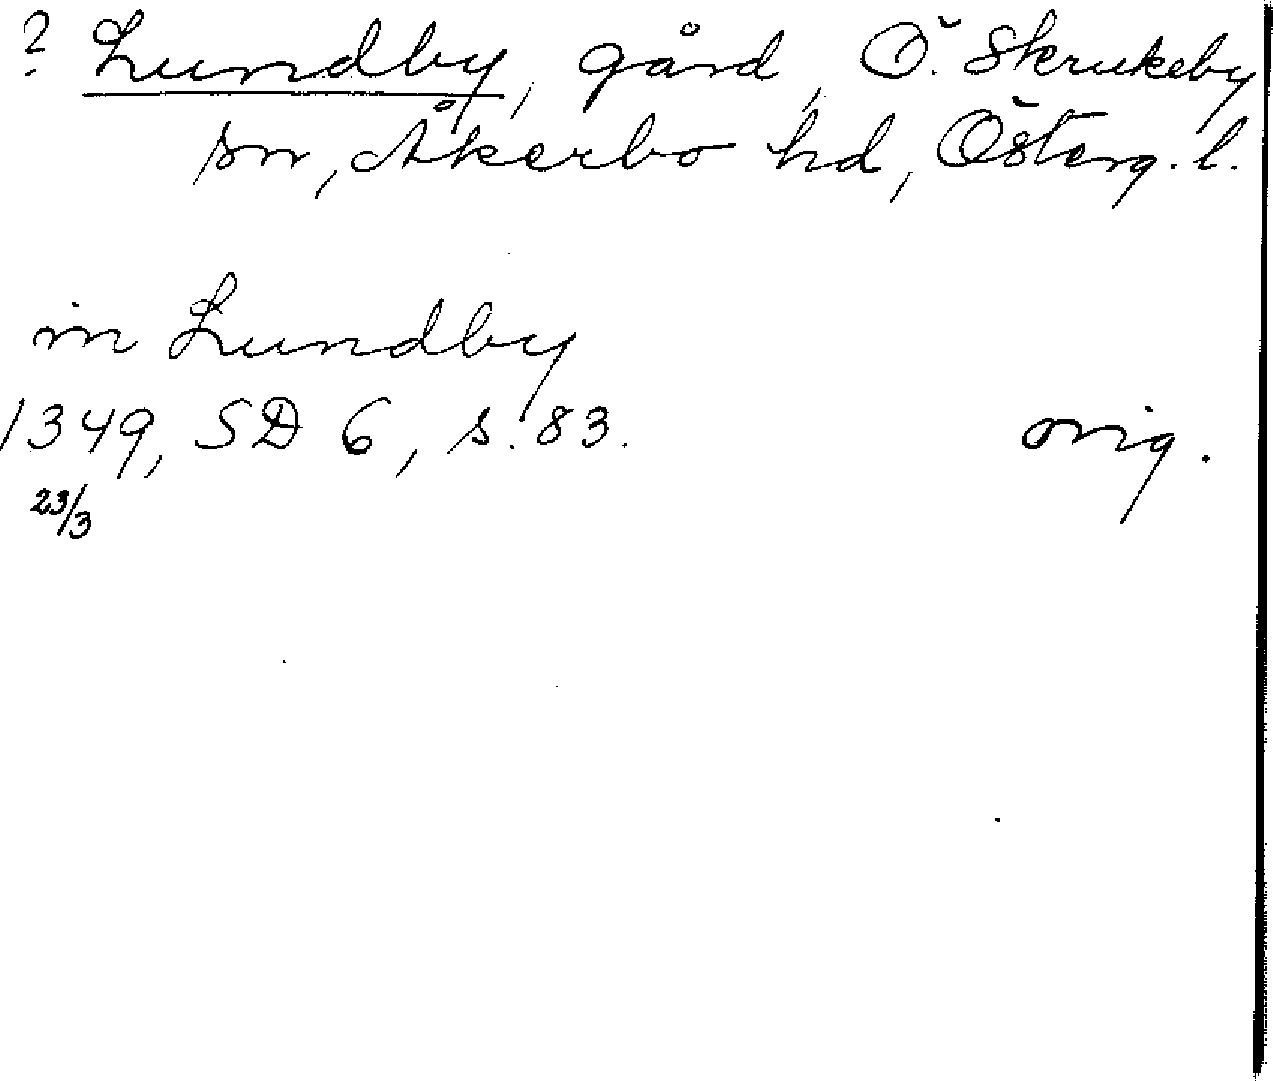 ? Lundby, gård, Ö. Skrukeby
sn, Åkerbo hd, Österg. l.
in Lundby
1349, SD 6, s. 83. orig.
23/3